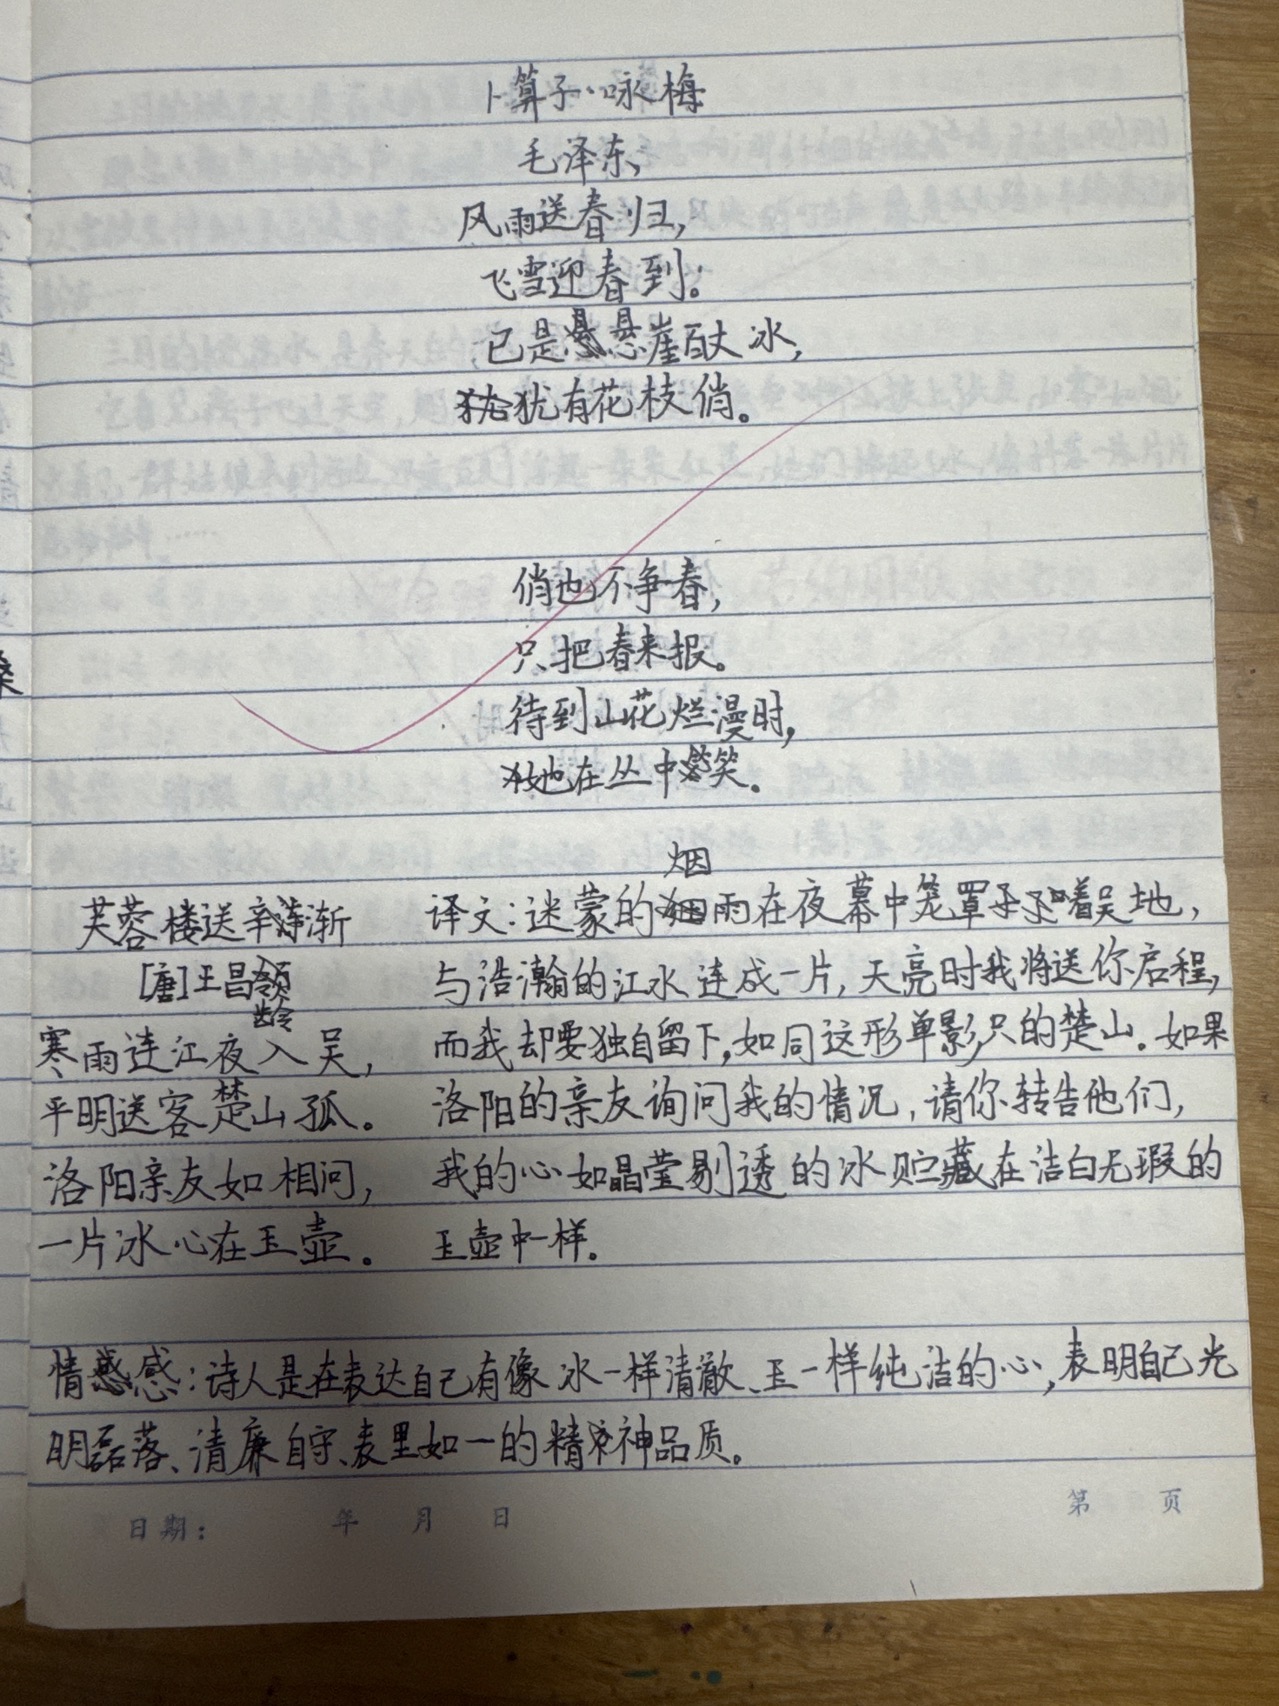 卜算子·咏梅
毛泽东
风雨送春归，
飞雪迎春到。
已是悬崖百丈冰，
犹有花枝俏。
俏也不争春，
只把春来报。
待到山花烂漫时，
她在丛中笑。
芙蓉楼送辛渐
[唐]王昌龄
寒雨连江夜入吴，
平明送客楚山孤。
洛阳亲友如相问，
一片冰心在玉壶。
译文：迷蒙的烟雨在夜幕中笼罩着吴地，
与浩瀚的江水连成一片，天亮时我将送你启程，
而我却要独自留下，如同这形单影只的楚山。如果
洛阳的亲友询问我的情况，请你转告他们，
我的心如晶莹剔透的冰贮藏在洁白无瑕的
玉壶中一样。
情感：诗人是在表达自己有像冰一样清澈、玉一样纯洁的心，表明自己光
明磊落、清廉自守、表里如一的精神品质。
日期： 年 月 日
第 页